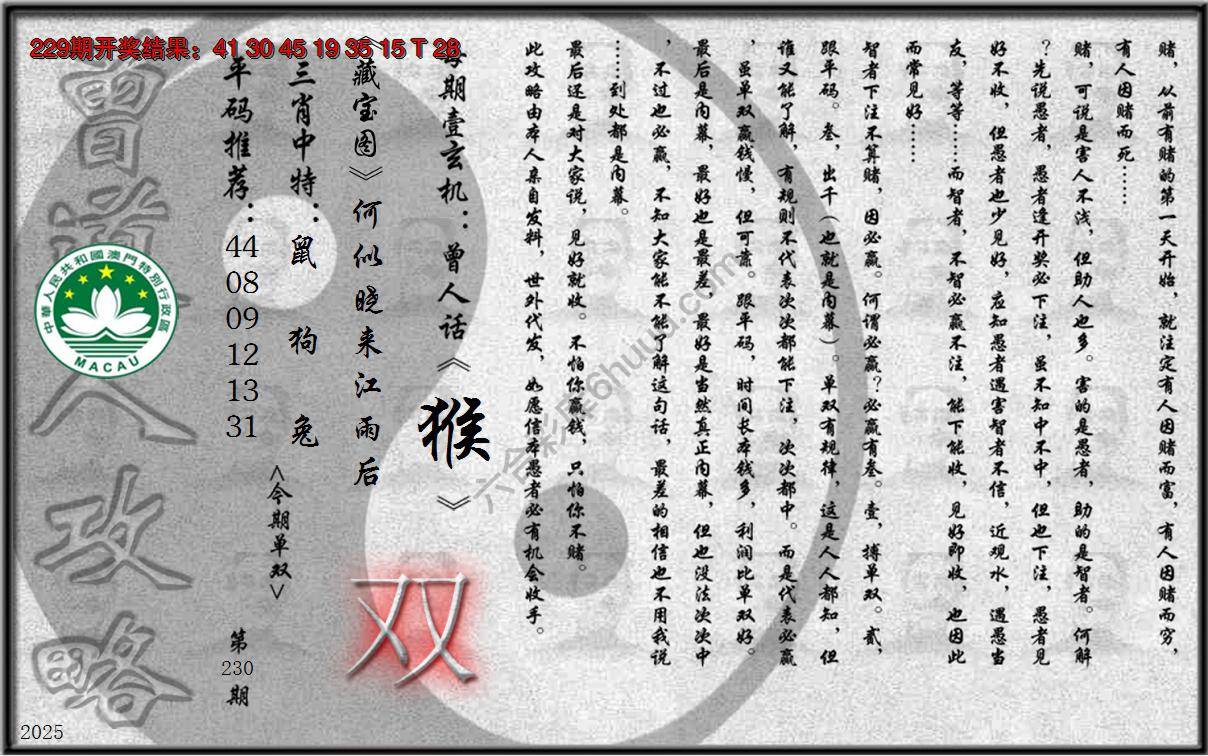 229期开奖结果：41 30 45 19 35 15 T 28
赌，从前有赌的第一天开始，就注定有人因赌而富，有人因赌而穷，
有人因赌而死……
赌，可说是害人不浅，但助人也多。害的是愚者，助的是智者。何解
？先说愚者，愚者逢开奖必下注，虽不知中不中，但也下注，愚者见
好不收，但愚者也少见好，应知愚者遇害智者不信，近观水，遇愚当
友，等等……而智者，不智必赢不注，能下能收，见好即收，也因此
而常见好……
智者下注不算赌，因必赢。何谓必赢？必赢有叁。壹，搏单双。贰，
跟平码。叁，出千（也就是内幕）。单双有规律，这是人人都知，但
谁又能了解，有规则不代表次次都能下注，次次都中。而是代表必赢
，虽单双赢钱慢，但可靠。跟平码，时间长本钱多，利润比单双好。
最后是内幕，最好也是最差，最好是当然真正内幕，但也没法次次中
，不过也必赢，不知大家能不能了解这句话，最差的相信也不用我说
……到处都是内幕。
最后还是对大家说，见好就收。不怕你赢钱，只怕你不赌。
此攻略由本人亲自发料，世外代发，如愿信本愚者必有机会收手。
每期壹玄机：曾人话《猴》
《藏宝图》何似晓来江雨后
双
三肖中特：鼠 狗 兔
<今期单双>
平码推荐：
44
08
09
12
13
31
第
230
期
曾道人攻略
中華人民共和國澳門特別行政區
MACAU
2025